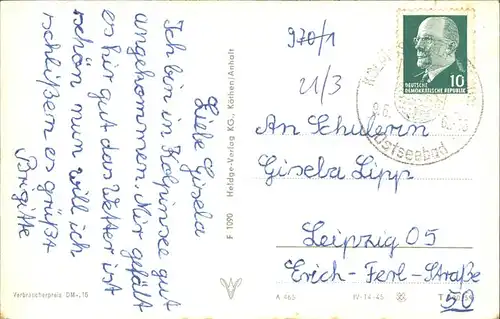 Liebe Gisela
Ich bin in Kolpinsee gut
angekommen. Mir gefält
es hir gut das Wetter ist
schön nun will ich
schlißen es grüßt
Brigitte
Verbraucherpreis DM -,15
F 1090 Heldge-Verlag KG., Köthen/Anhalt
970/1
21/3
DEUTSCHE
DEMOKRATISCHE REPUBLIK
10
Ostseebad
An Schülerin
Gisela Lipp
Leipzig 05
Erich-Ferl-Straße
50
A 465
IV-14-45